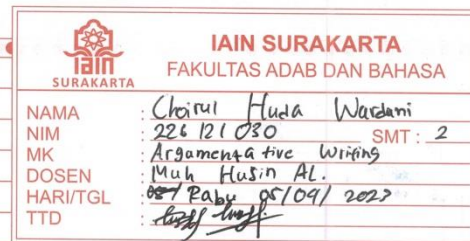 iain
SURAKARTA
IAIN SURAKARTA
FAKULTAS ADAB DAN BAHASA
NAMA : Choirul Huda Wardani
NIM : 226121030 SMT : 2
MK : Argumentative Writing
DOSEN : Muh Husin AL.
HARI/TGL : Rabu 05/04/2023
TTD :